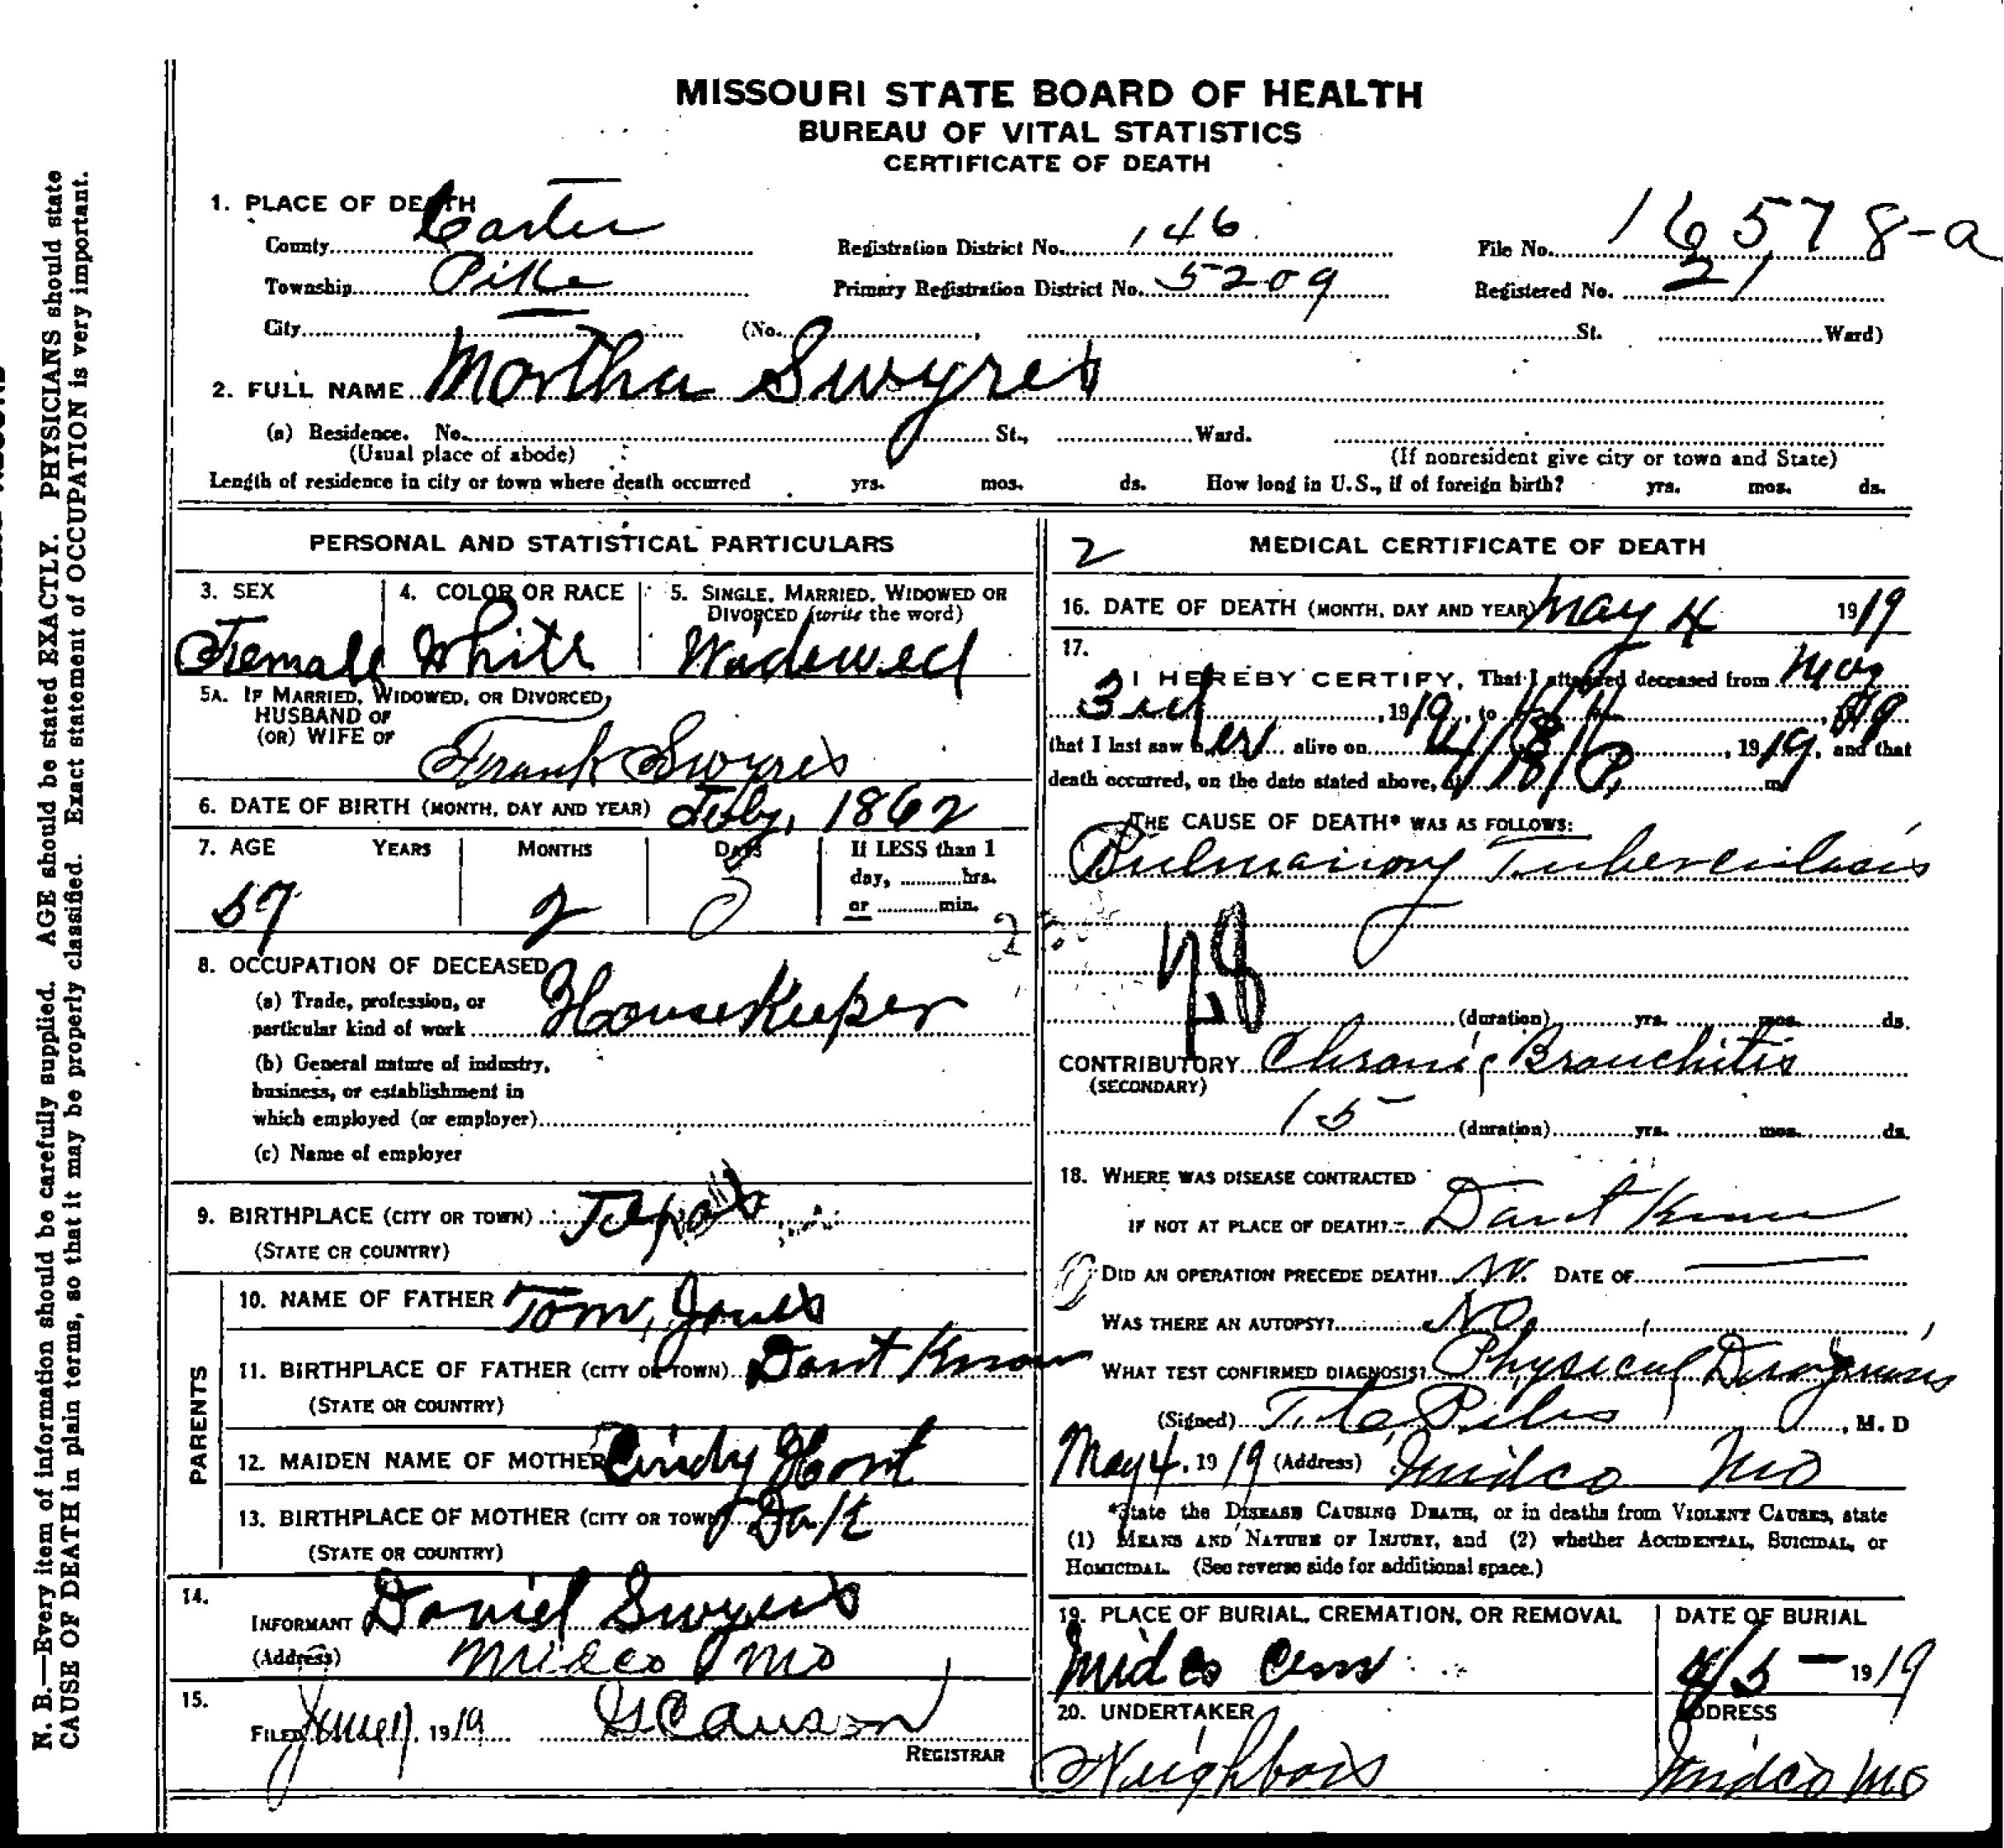 MISSOURI STATE BOARD OF HEALTH
BUREAU OF VITAL STATISTICS
CERTIFICATE OF DEATH
1. PLACE OF DEATH
County Carter Registration District No. 146 File No. 16578-a
Township Pike Primary Registration District No. 5209 Registered No. 21
City (No. , St. Ward)
2. FULL NAME Martha Swyres
(a) Residence. No. St., Ward.
(Usual place of abode) (If nonresident give city or town and State)
Length of residence in city or town where death occurred yrs. mos. ds. How long in U.S., if of foreign birth? yrs. mos. ds.
PERSONAL AND STATISTICAL PARTICULARS
3. SEX 4. COLOR OR RACE 5. SINGLE, MARRIED, WIDOWED OR
DIVORCED (write the word)
Female White Widowed
5A. IF MARRIED, WIDOWED, OR DIVORCED,
HUSBAND OF
(OR) WIFE OF
Frank Swyres
6. DATE OF BIRTH (MONTH, DAY AND YEAR) Feby, 1862
7. AGE YEARS MONTHS DAYS If LESS than 1
day, hrs.
or min.
57 2 0
8. OCCUPATION OF DECEASED
(a) Trade, profession, or
particular kind of work HouseKeeper
(b) General nature of industry,
business, or establishment in
which employed (or employer)
(c) Name of employer
9. BIRTHPLACE (CITY OR TOWN)
(STATE OR COUNTRY)
PARENTS
10. NAME OF FATHER Tom, Jones
11. BIRTHPLACE OF FATHER (CITY OR TOWN) Dont Know
(STATE OR COUNTRY)
12. MAIDEN NAME OF MOTHER Cindy
13. BIRTHPLACE OF MOTHER (CITY OR TOWN)
(STATE OR COUNTRY)
14.
INFORMANT Daniel Swyers
(Address) Midco Mo
15.
FILED June 1919
REGISTRAR
2 MEDICAL CERTIFICATE OF DEATH
16. DATE OF DEATH (MONTH, DAY AND YEAR) May 4 1919
17.
I HEREBY CERTIFY, That I attended deceased from May
3rd, 1919, to , 1919
that I last saw her alive on , 1919, and that
death occurred, on the date stated above, at m
THE CAUSE OF DEATH* WAS AS FOLLOWS:
Pulmairoy Tuberculasis
(duration) yrs. mos. ds.
CONTRIBUTORY Chronic Bronchitis
(SECONDARY)
15 (duration) yrs. mos. ds.
18. WHERE WAS DISEASE CONTRACTED
IF NOT AT PLACE OF DEATH? Dont Know
DID AN OPERATION PRECEDE DEATH? No. DATE OF
WAS THERE AN AUTOPSY? No
WHAT TEST CONFIRMED DIAGNOSIS? Physical Diagnosis
(Signed) , M. D
May 4, 1919 (Address) Midco Mo
*State the DISEASE CAUSING DEATH, or in deaths from VIOLENT CAUSES, state
(1) MEANS AND NATURE OF INJURY, and (2) whether ACCIDENTAL, SUICIDAL, or
HOMICIDAL. (See reverse side for additional space.)
19. PLACE OF BURIAL, CREMATION, OR REMOVAL DATE OF BURIAL
Midco Cem 4/5 - 1919
20. UNDERTAKER ADDRESS
Neighbors Midco Mo
N. B.—Every item of information should be carefully supplied. AGE should be stated EXACTLY. PHYSICIANS should state
CAUSE OF DEATH in plain terms, so that it may be properly classified. Exact statement of OCCUPATION is very important.